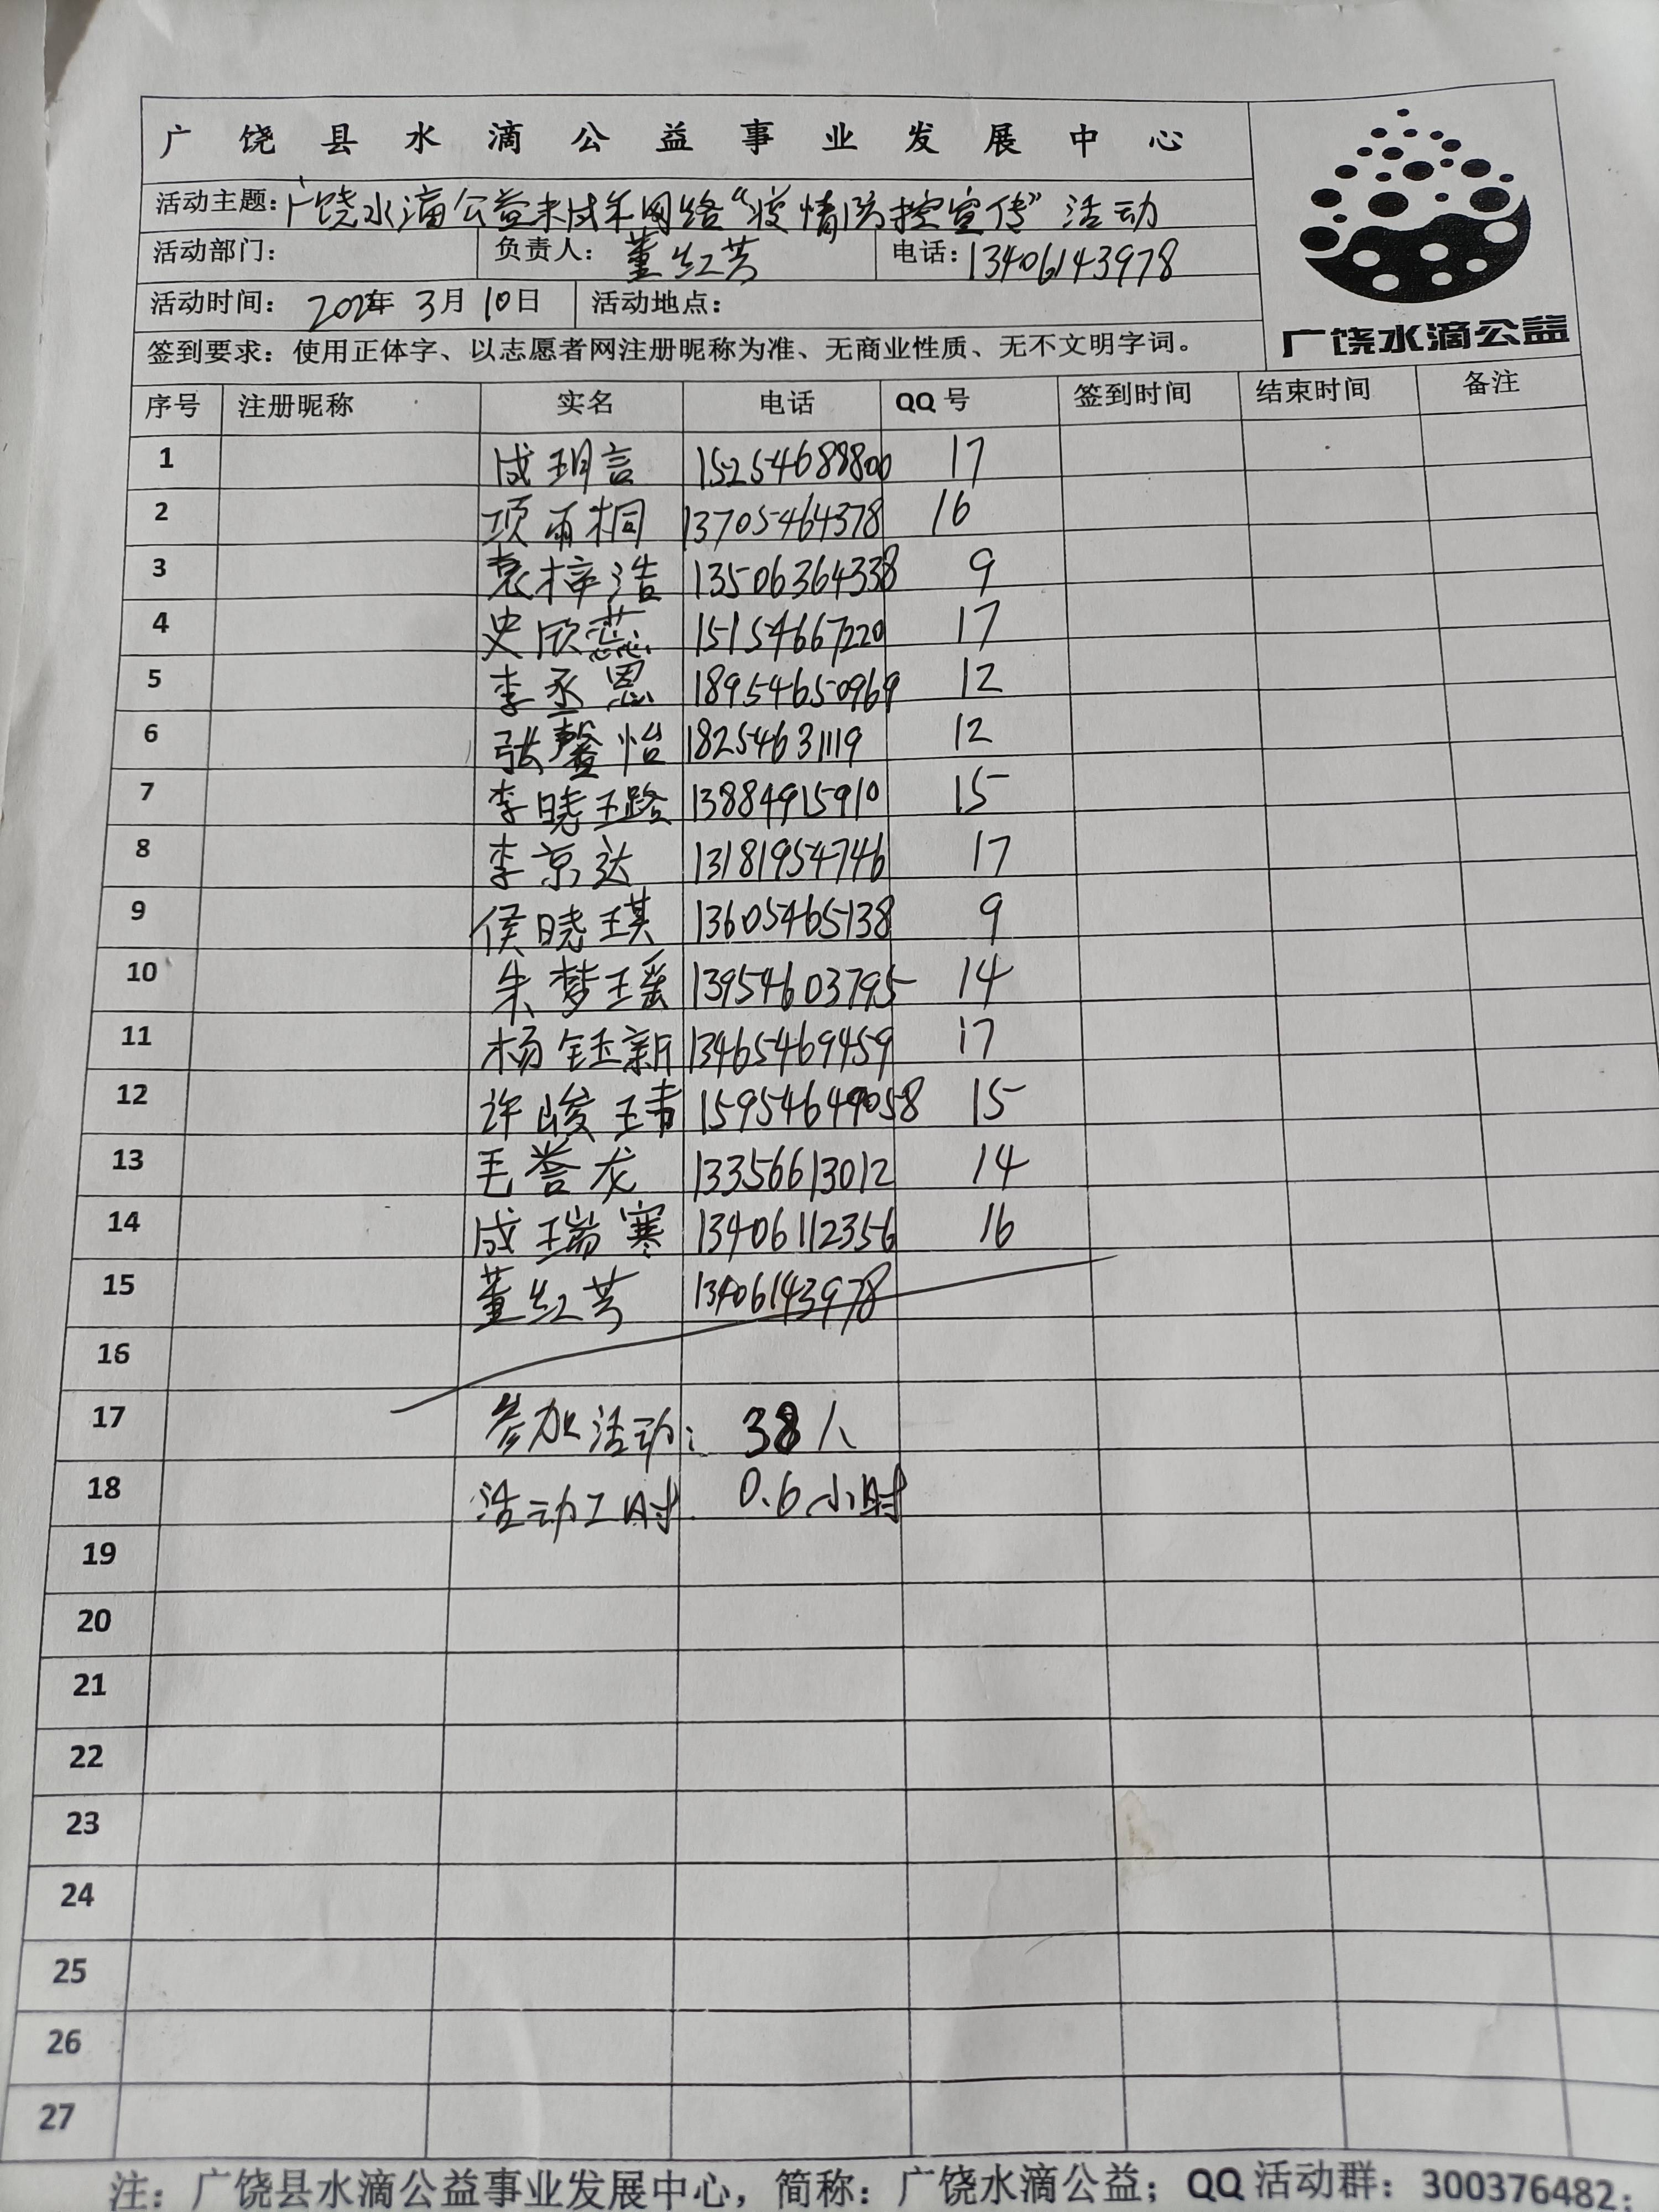 广饶县水滴公益事业发展中心
活动主题：广饶水滴公益未成年网络“疫情防控宣传”活动
活动部门： 负责人：董红芳 电话：13406143978
活动时间： 年 3月 10日 活动地点：
广饶水滴公益
签到要求：使用正体字、以志愿者网注册昵称为准、无商业性质、无不文明字词。
序号 注册昵称 实名 电话 QQ号 签到时间 结束时间 备注
1 成玥言 15254688800 17
2 项雨桐 13705464378 16
3 袁梓浩 13506364338 9
4 史欣蕊 15154667220 17
5 李丞恩 18954650969 12
6 张馨怡 18254631119 12
7 李晓璐 13884915910 15
8 李京达 13181954746 17
9 侯晓琪 13605465138 9
10 朱梦瑶 13954603795 14
11 杨钰新 13465469459 17
12 许峻 15954649058 15
13 毛誉龙 13356613012 14
14 成瑞寒 13406112356 16
15 董红芳 13406143978
16
17 参加活动： 38人
18 活动工时 0.6小时
19
20
21
22
23
24
25
26
27
注：广饶县水滴公益事业发展中心，简称：广饶水滴公益；QQ活动群：300376482；